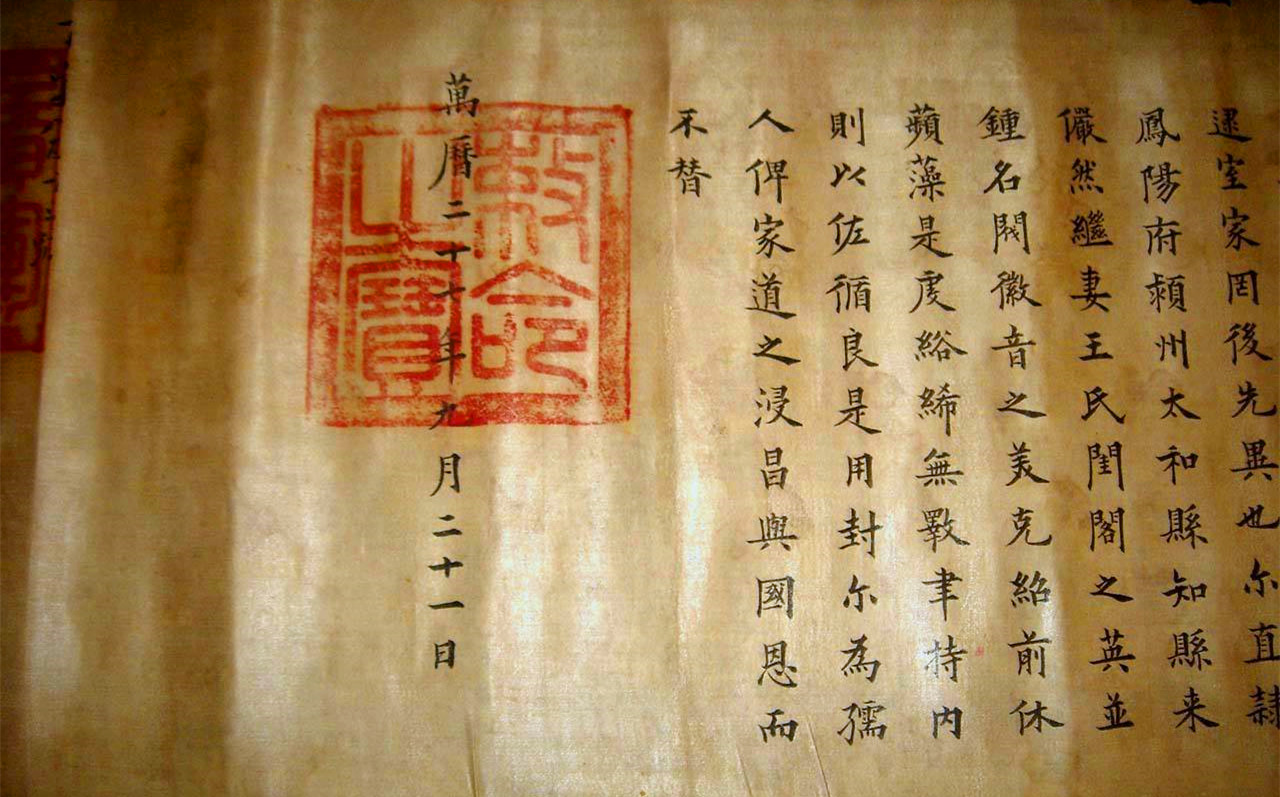 逮室家罔後先異也尔直隸
鳳陽府潁州太和縣知縣来
儼然繼妻王氏閨閣之英並
鍾名閥徽音之美克紹前休
蘋藻是虔綌絺無斁聿持内
則以佐循良是用封尔為孺
人俾家道之浸昌與國恩而
不替
敕命
之寶
萬曆二十七年九月二十一日